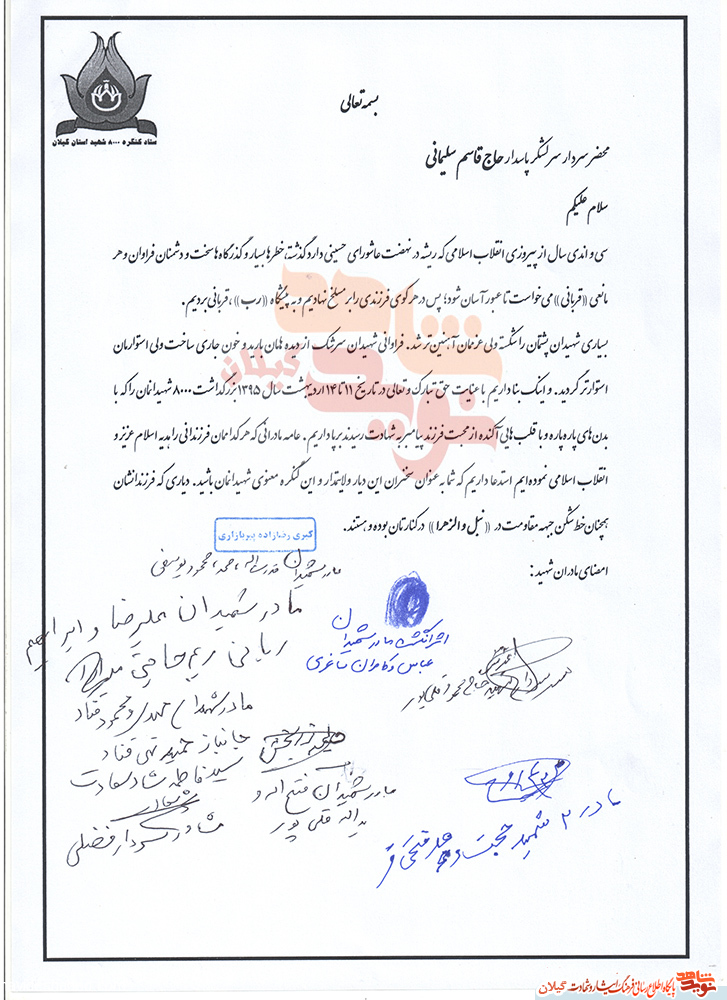 ستاد کنگره ۸۰۰۰ شهید استان گیلان
بسمه تعالی
محضر سردار سرلشکر پاسدار حاج قاسم سلیمانی
سلام علیکم
سی و اندی سال از پیروزی انقلاب اسلامی که ریشه در نهضت عاشورای حسینی دارد گذشته، خطرها بسیار و گذرگاه ها سخت و دشمنان فراوان و هر
مانعی «قربانی» می خواست تا عبور آسان شود؛ پس در هر کوی فرزندی را بر مسلخ نهادیم و به پیشگاه «رب»، قربانی بردیم.
بسیاری شهیدان پشتمان را شکسته ولی عزممان آهنین تر شد. فراوانی شهیدان سرشک از دیده مان بارید و خون جاری ساخت ولی استوارمان
استوارتر گردید. و اینک بنا داریم با عنایت حق تبارک و تعالی در تاریخ ۱۱ تا ۱۴ اردیبهشت سال ۱۳۹۵ بزرگداشت ۸۰۰۰ شهیدانمان را که با
بدن های پاره پاره و با قلب هایی آکنده از محبت فرزند پیامبر به شهادت رسیدند برپا داریم. عامه مادرانی که هر کدامان فرزندانی را هدیه اسلام عزیز و
انقلاب اسلامی نموده ایم استدعا داریم که شما به عنوان سخنران این دیار ولایتمدار و این کنگره معنوی شهیدانمان باشید. دیاری که فرزندانشان
همچنان خط شکن جبهه مقاومت در «نبل و الزهرا» در کنارتان بوده و هستند.
کبری رضازاده پیربازاری
امضای مادران شهید:
مادر شهیدان قدرت اله، صمد، محمود یوسفی
مادر شهیدان علیرضا و ابراهیم
اثر انگشت مادر شهیدان
عباس و کامران ساغری
مادر شهیدان مهدی و محمود قناد
جانباز حمید تقی قناد
سید فاطمه شاد سعادت
مادر شهیدان فتح اله و
یداله قلی پور
مادر سردار فضلی
مادر ۲ شهید حجت و
نوید شاهد گیلان
پایگاه اطلاع رسانی فرهنگ ایثار و شهادت گیلان
نوید شاهد